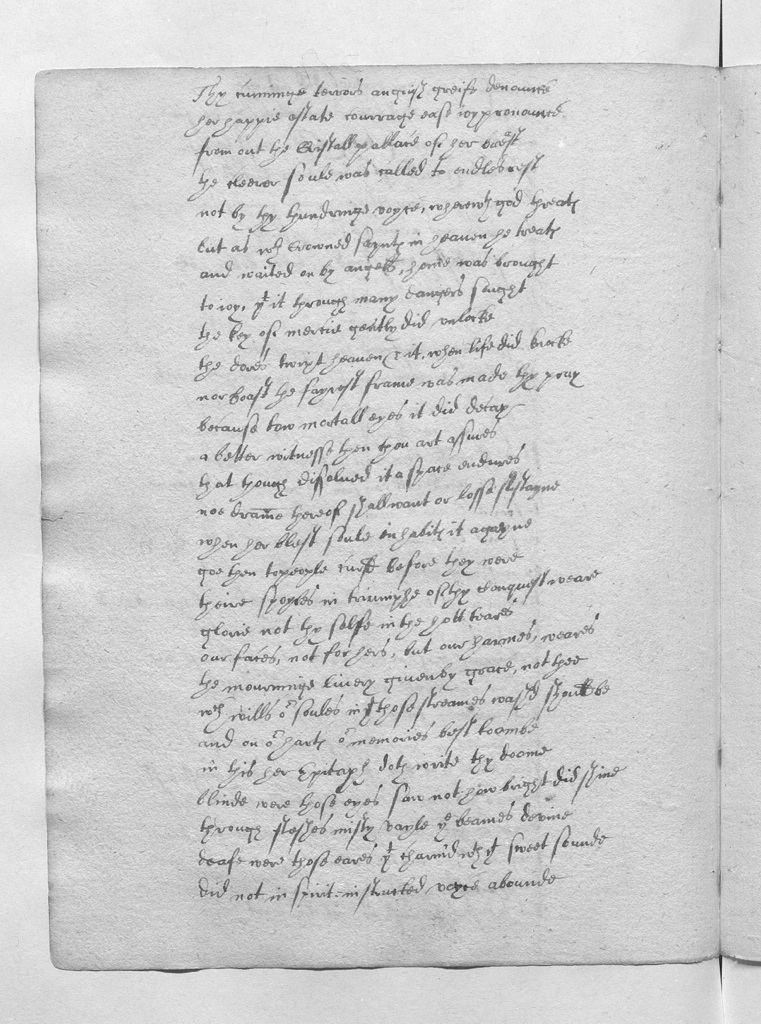 Thy cuminge terrors anguish greife denounce
her happie estate courrage ease ioy pronounce
from out the Cristall pallace of her brest
the cleerer soule was called to endles rest
not by thy thundringe voyce, wherewth god threats
but as wth Crowned saynts in heaven he treats
and waited on by angells, home was brought
to ioy, yt it through many dangers sought
the key of mercie gently did unlocke
the dores twixt heaven & it, when life did knocke
nor boast the fayrest frame was made thy pray
because to mortall eyes it did decay
a better witnesse then thou art assures
that though dissolued it a space endures
noe dramme thereof shall want or losse sustayne
when her blest soule inhabits it agayne
goe then to people curst before they were
theire spoyles in triumphe of thy conquest weare
glorie not thy selfe in the hott teares
our faces, not for hers, but our harmes, weares
the mourninge livery given by grace, not thee
wch wills or soules in those streames washt should be
and on or harts or memories best toombe
in this her Epitaph doth write thy doome
blinde were those eyes saw not how bright did shine
through fleshes misty vayle ye beames devine
deafe were those eares yt charmd wth yt sweet sounde
did not in spirit-instructed voyce abounde